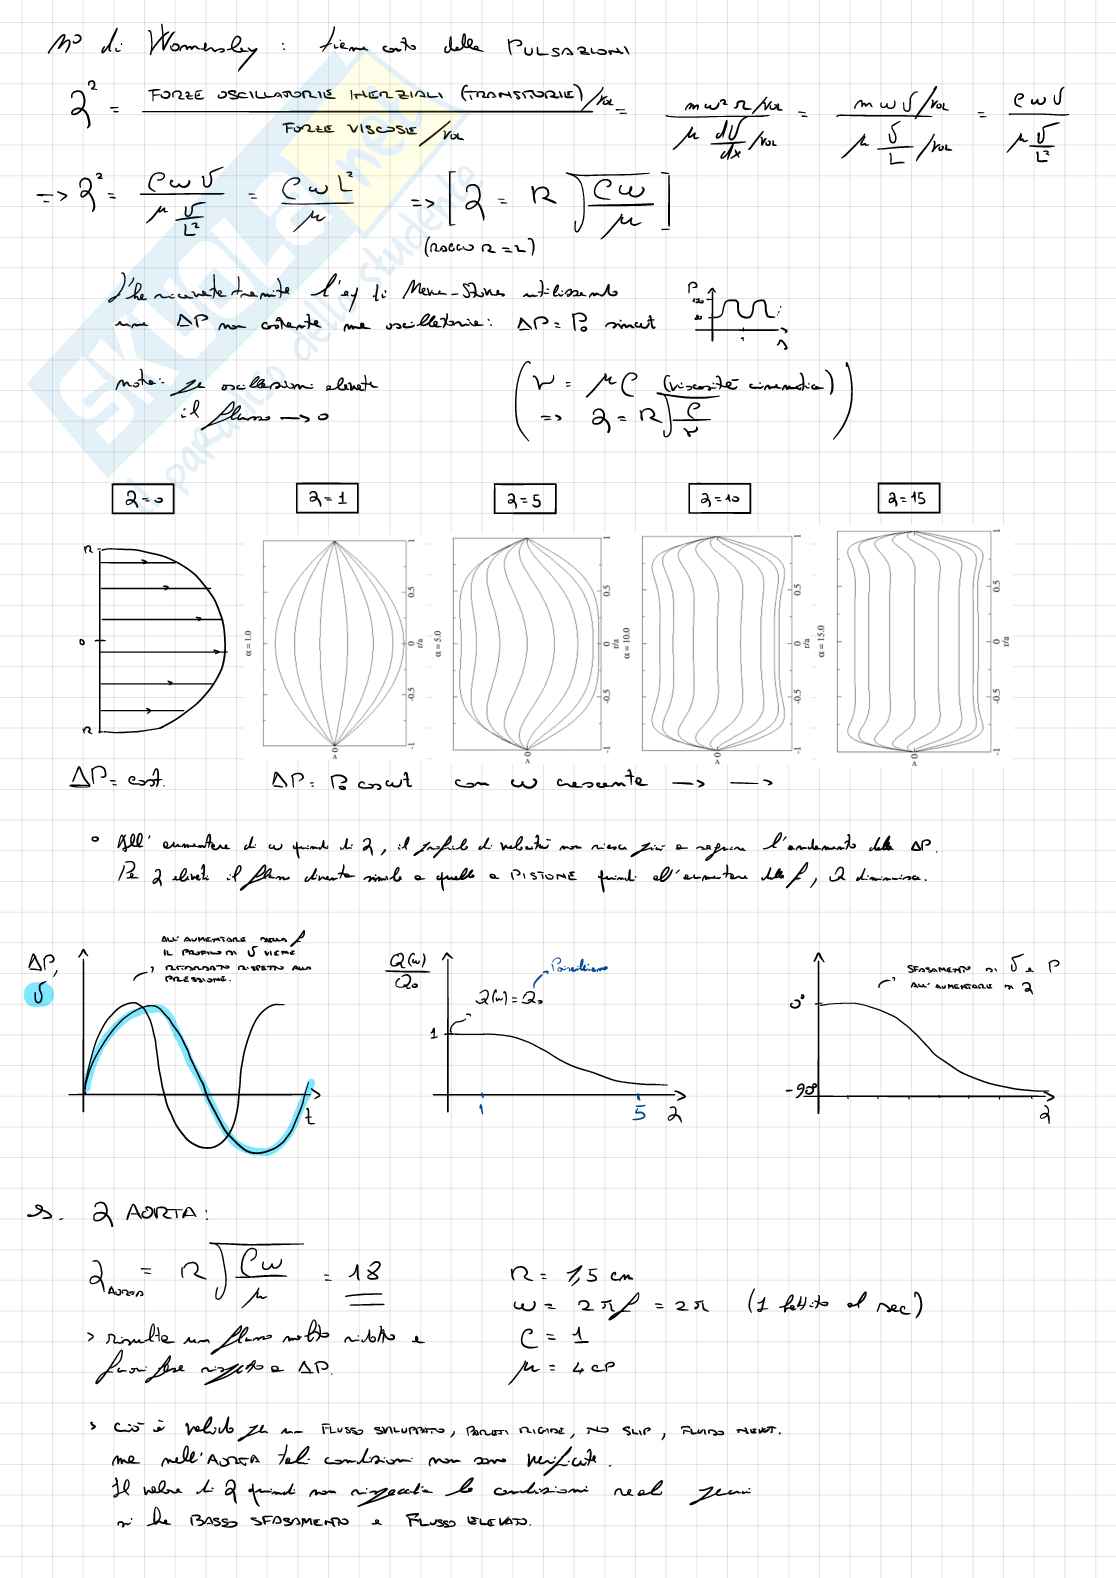 N° di Womersley : tiene conto delle PULSAZIONI
α² = FORZE OSCILLATORIE INERZIALI (TRANSITORIE)/VOL / FORZE VISCOSE/VOL = m ω² r/VOL / μ dv/dx /VOL = m ω v/VOL / μ v/L /VOL = ρ ω v / μ v/L²
=> α² = ρ ω v / μ v/L² = ρ ω L² / μ => [α = R √(ρω/μ)]
(RAGGIO R = L)
utilizzando
una ΔP non costante ma oscillatoria: ΔP = P₀ sin ωt
P
120
80
nota: per oscillazioni elevate
il flusso → 0
(ν = μρ (viscosità cinematica)
=> α = R √(ρ/ν))
α = 0
α = 1
α = 5
α = 10
α = 15
R
0
R
α = 1.0
1
0.5
0
r/a
-0.5
-1
0
v
α = 5.0
1
0.5
0
r/a
-0.5
-1
0
v
α = 10.0
1
0.5
0
r/a
-0.5
-1
0
v
α = 15.0
1
0.5
0
r/a
-0.5
-1
0
v
ΔP = cost.
ΔP = P₀ cos ωt con ω crescente → →
° All'aumentare di ω quindi di α, il profilo di velocità non riesce più a seguire l'andamento della ΔP.
Per α elevati il flusso diventa simile a quello a PISTONE quindi all'aumentare della f, Q diminuisce.
ALL'AUMENTARE DELLA f
IL PROFILO DI v VIENE
RITARDATO RISPETTO ALLA
PRESSIONE.
ΔP,
v
t
Q(ω)/Q₀
Poiseuilleiano
Q(ω) = Q₀
1
1
5
α
SFASAMENTO DI v e P
ALL'AUMENTARE DI α
0°
-90°
α
es. α AORTA:
α AORTA = R √(ρω/μ) = 18
R = 1,5 cm
ω = 2πf = 2π (1 battito al sec)
ρ = 1
μ = 4 cP
> risulta un flusso molto ridotto e
fuori fase rispetto a ΔP.
> ciò è valido per un FLUSSO SVILUPPATO, PARETI RIGIDE, NO SLIP, FLUIDO NEWT.
ma nell'AORTA tali condizioni non sono verificate.
Il valore di α quindi non rispecchia le condizioni reali
si ha BASSO SFASAMENTO e FLUSSO ELEVATO.